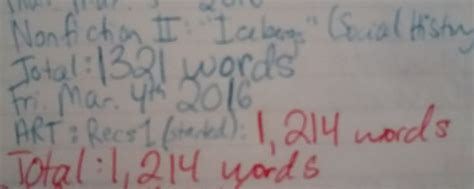 2016
Nonfiction II: "Icebergs" (Social History
Total: 1321 words
Fri. Mar. 4th 2016
ART: Recs 1 (started): 1,214 words
Total: 1,214 words